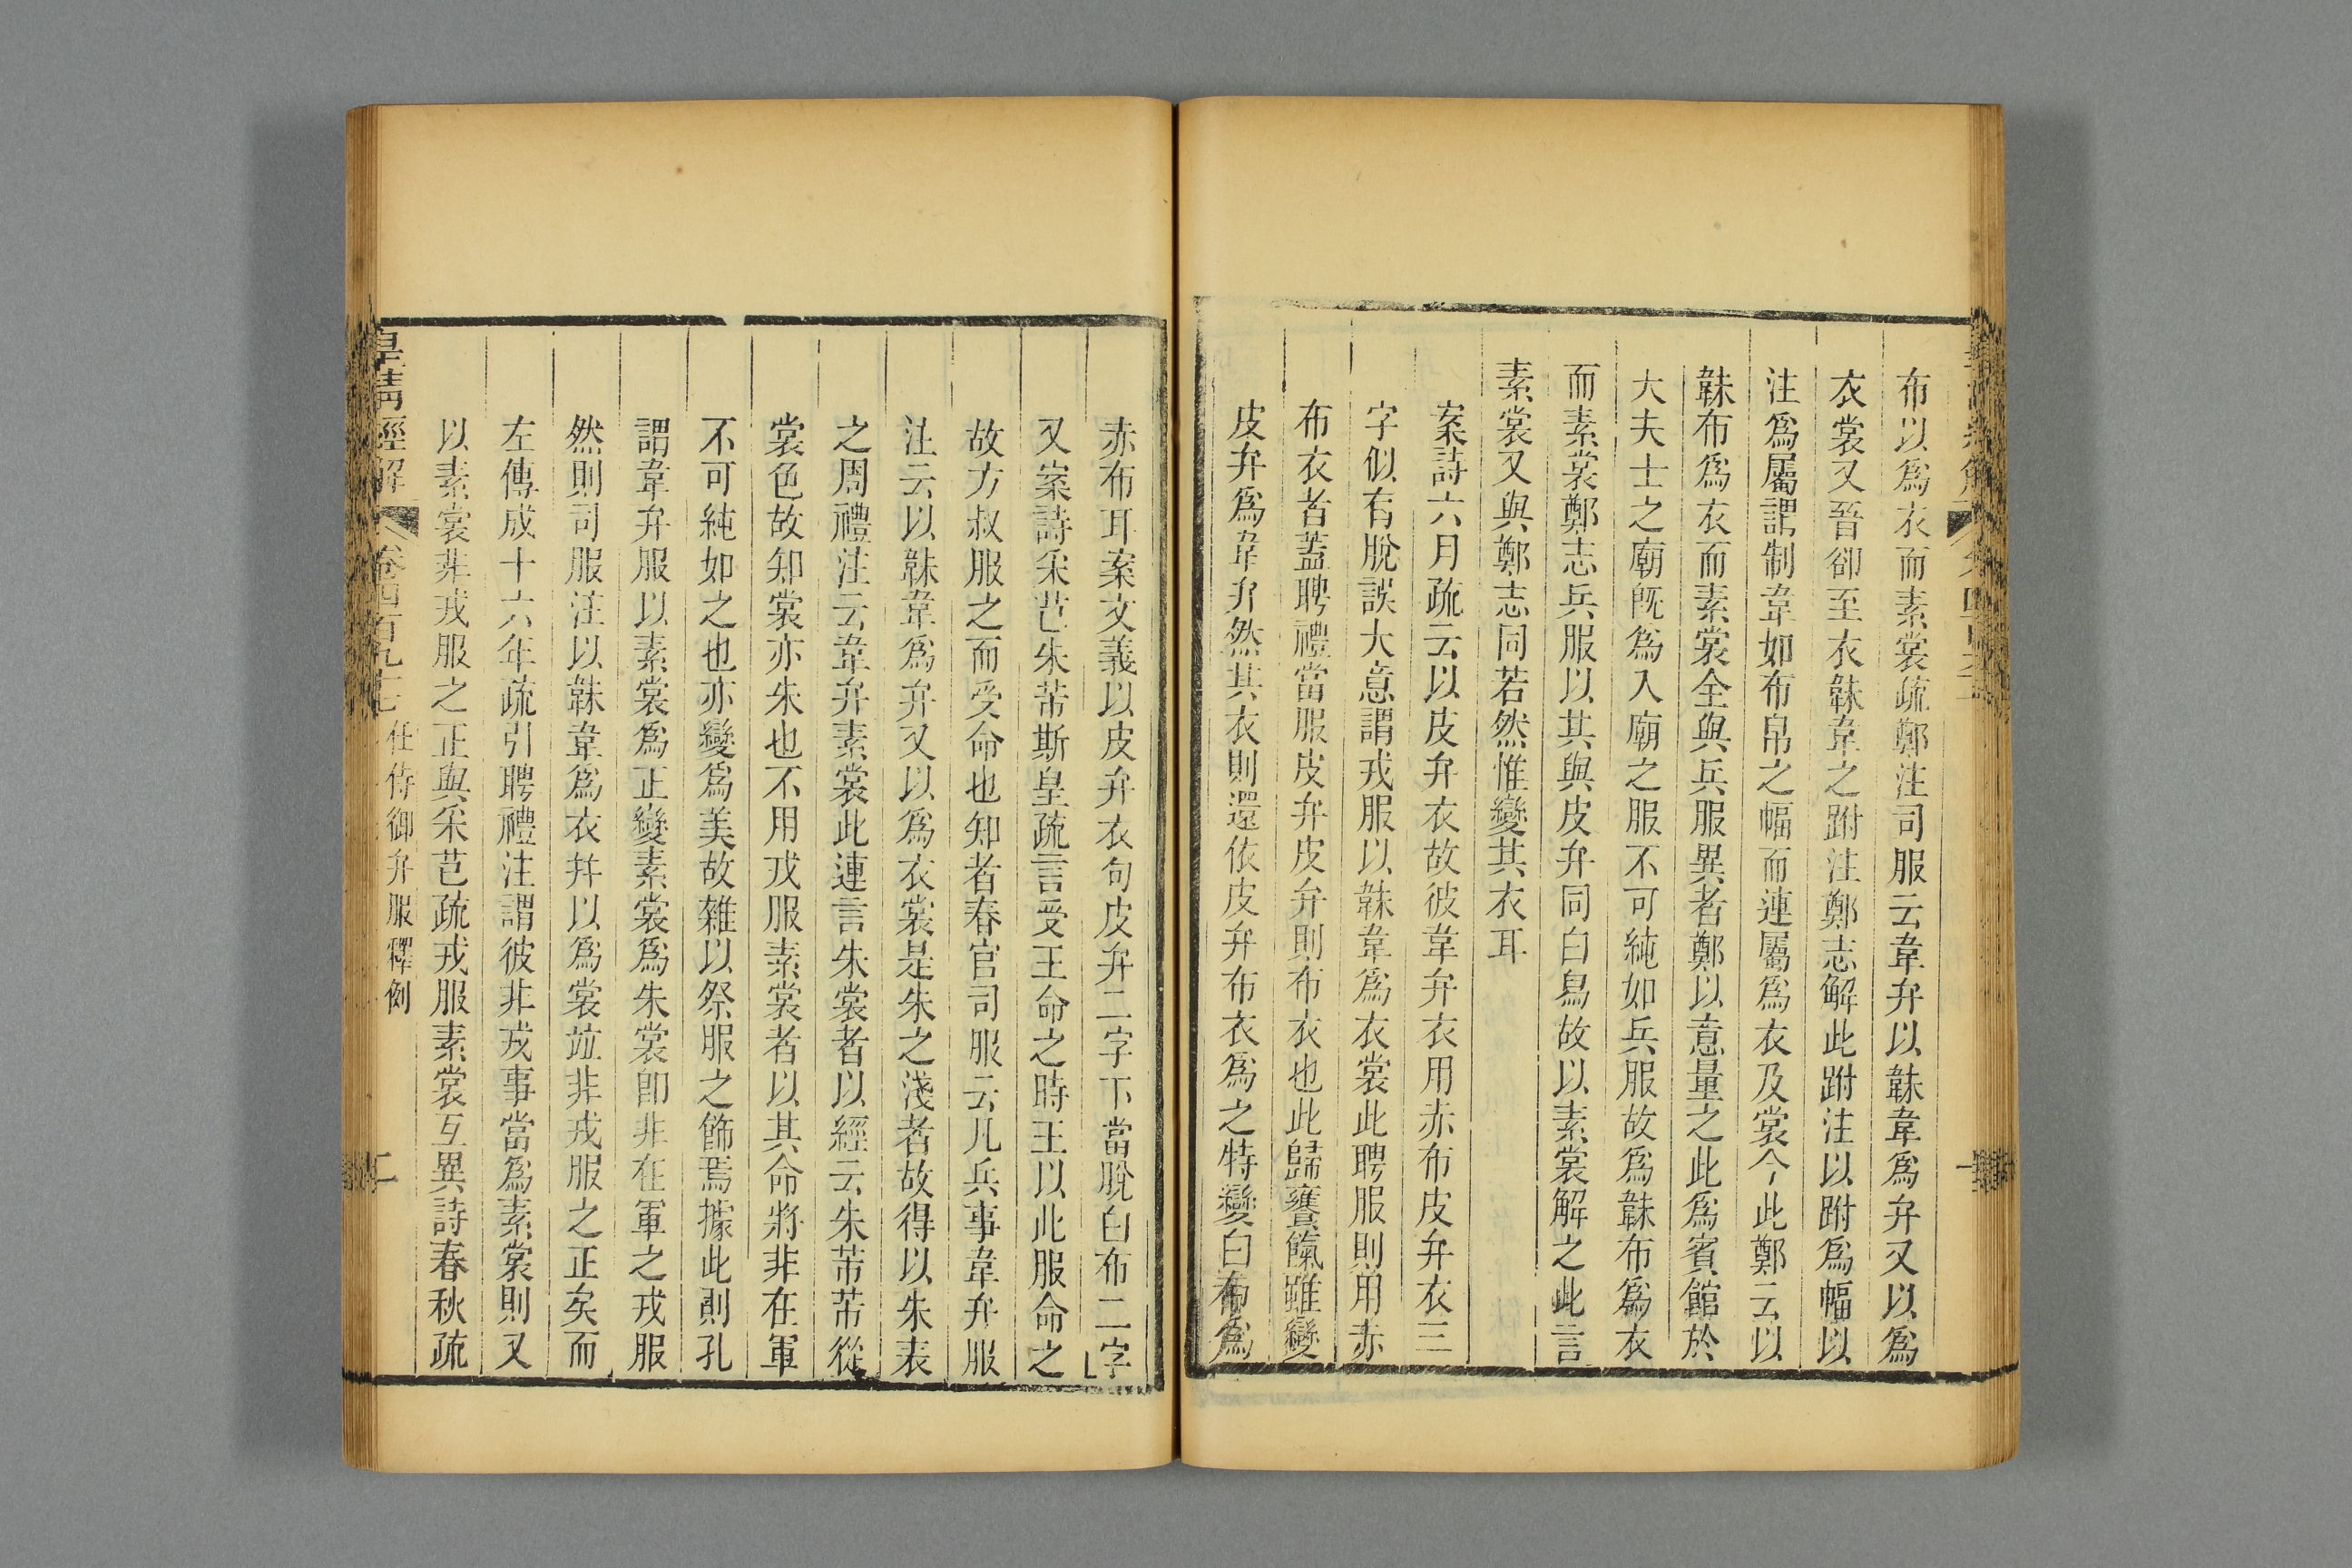 布以爲衣而素裳疏鄭注司服云韋弁以韎韋爲弁又以爲
衣裳又晉郤至衣韎韋之跗注鄭志解此跗注以跗爲幅以
注爲屬謂制韋如布帛之幅而連屬爲衣及裳今此鄭云以
韎布爲衣而素裳全與兵服異者鄭以意量之此爲賓館於
大夫士之廟旣爲入廟之服不可純如兵服故爲韎布爲衣
而素裳鄭志兵服以其與皮弁同白舄故以素裳解之此言
素裳又與鄭志同若然惟變其衣耳
案詩六月疏云以皮弁衣故彼韋弁衣用赤布皮弁衣三
字似有脫誤大意謂戎服以韎韋爲衣裳此聘服則用赤
布衣者蓋聘禮當服皮弁皮弁則布衣也此歸饔餼雖變
皮弁爲韋弁然其衣則還依皮弁布衣爲之特變白布爲
赤布耳案文義以皮弁衣句皮弁二字下當脫白布二字
又案詩采芑朱芾斯皇疏言受王命之時王以此服命之
故方叔服之而受命也知者春官司服云凡兵事韋弁服
注云以韎韋爲弁又以爲衣裳是朱之淺者故得以朱表
之周禮注云韋弁素裳此連言朱裳者以經云朱芾芾從
裳色故知裳亦朱也不用戎服素裳者以其命將非在軍
不可純如之也亦變爲美故雜以祭服之飾焉據此則孔
謂韋弁服以素裳爲正變素裳爲朱裳卽非在軍之戎服
然則司服注以韎韋爲衣幷以爲裳竝非戎服之正矣而
左傳成十六年疏引聘禮注謂彼非戎事當爲素裳則又
以素裳非戎服之正與采芑疏戎服素裳互異詩春秋疏
皇淸經解 卷四百九十七 任侍御弁服釋例 二